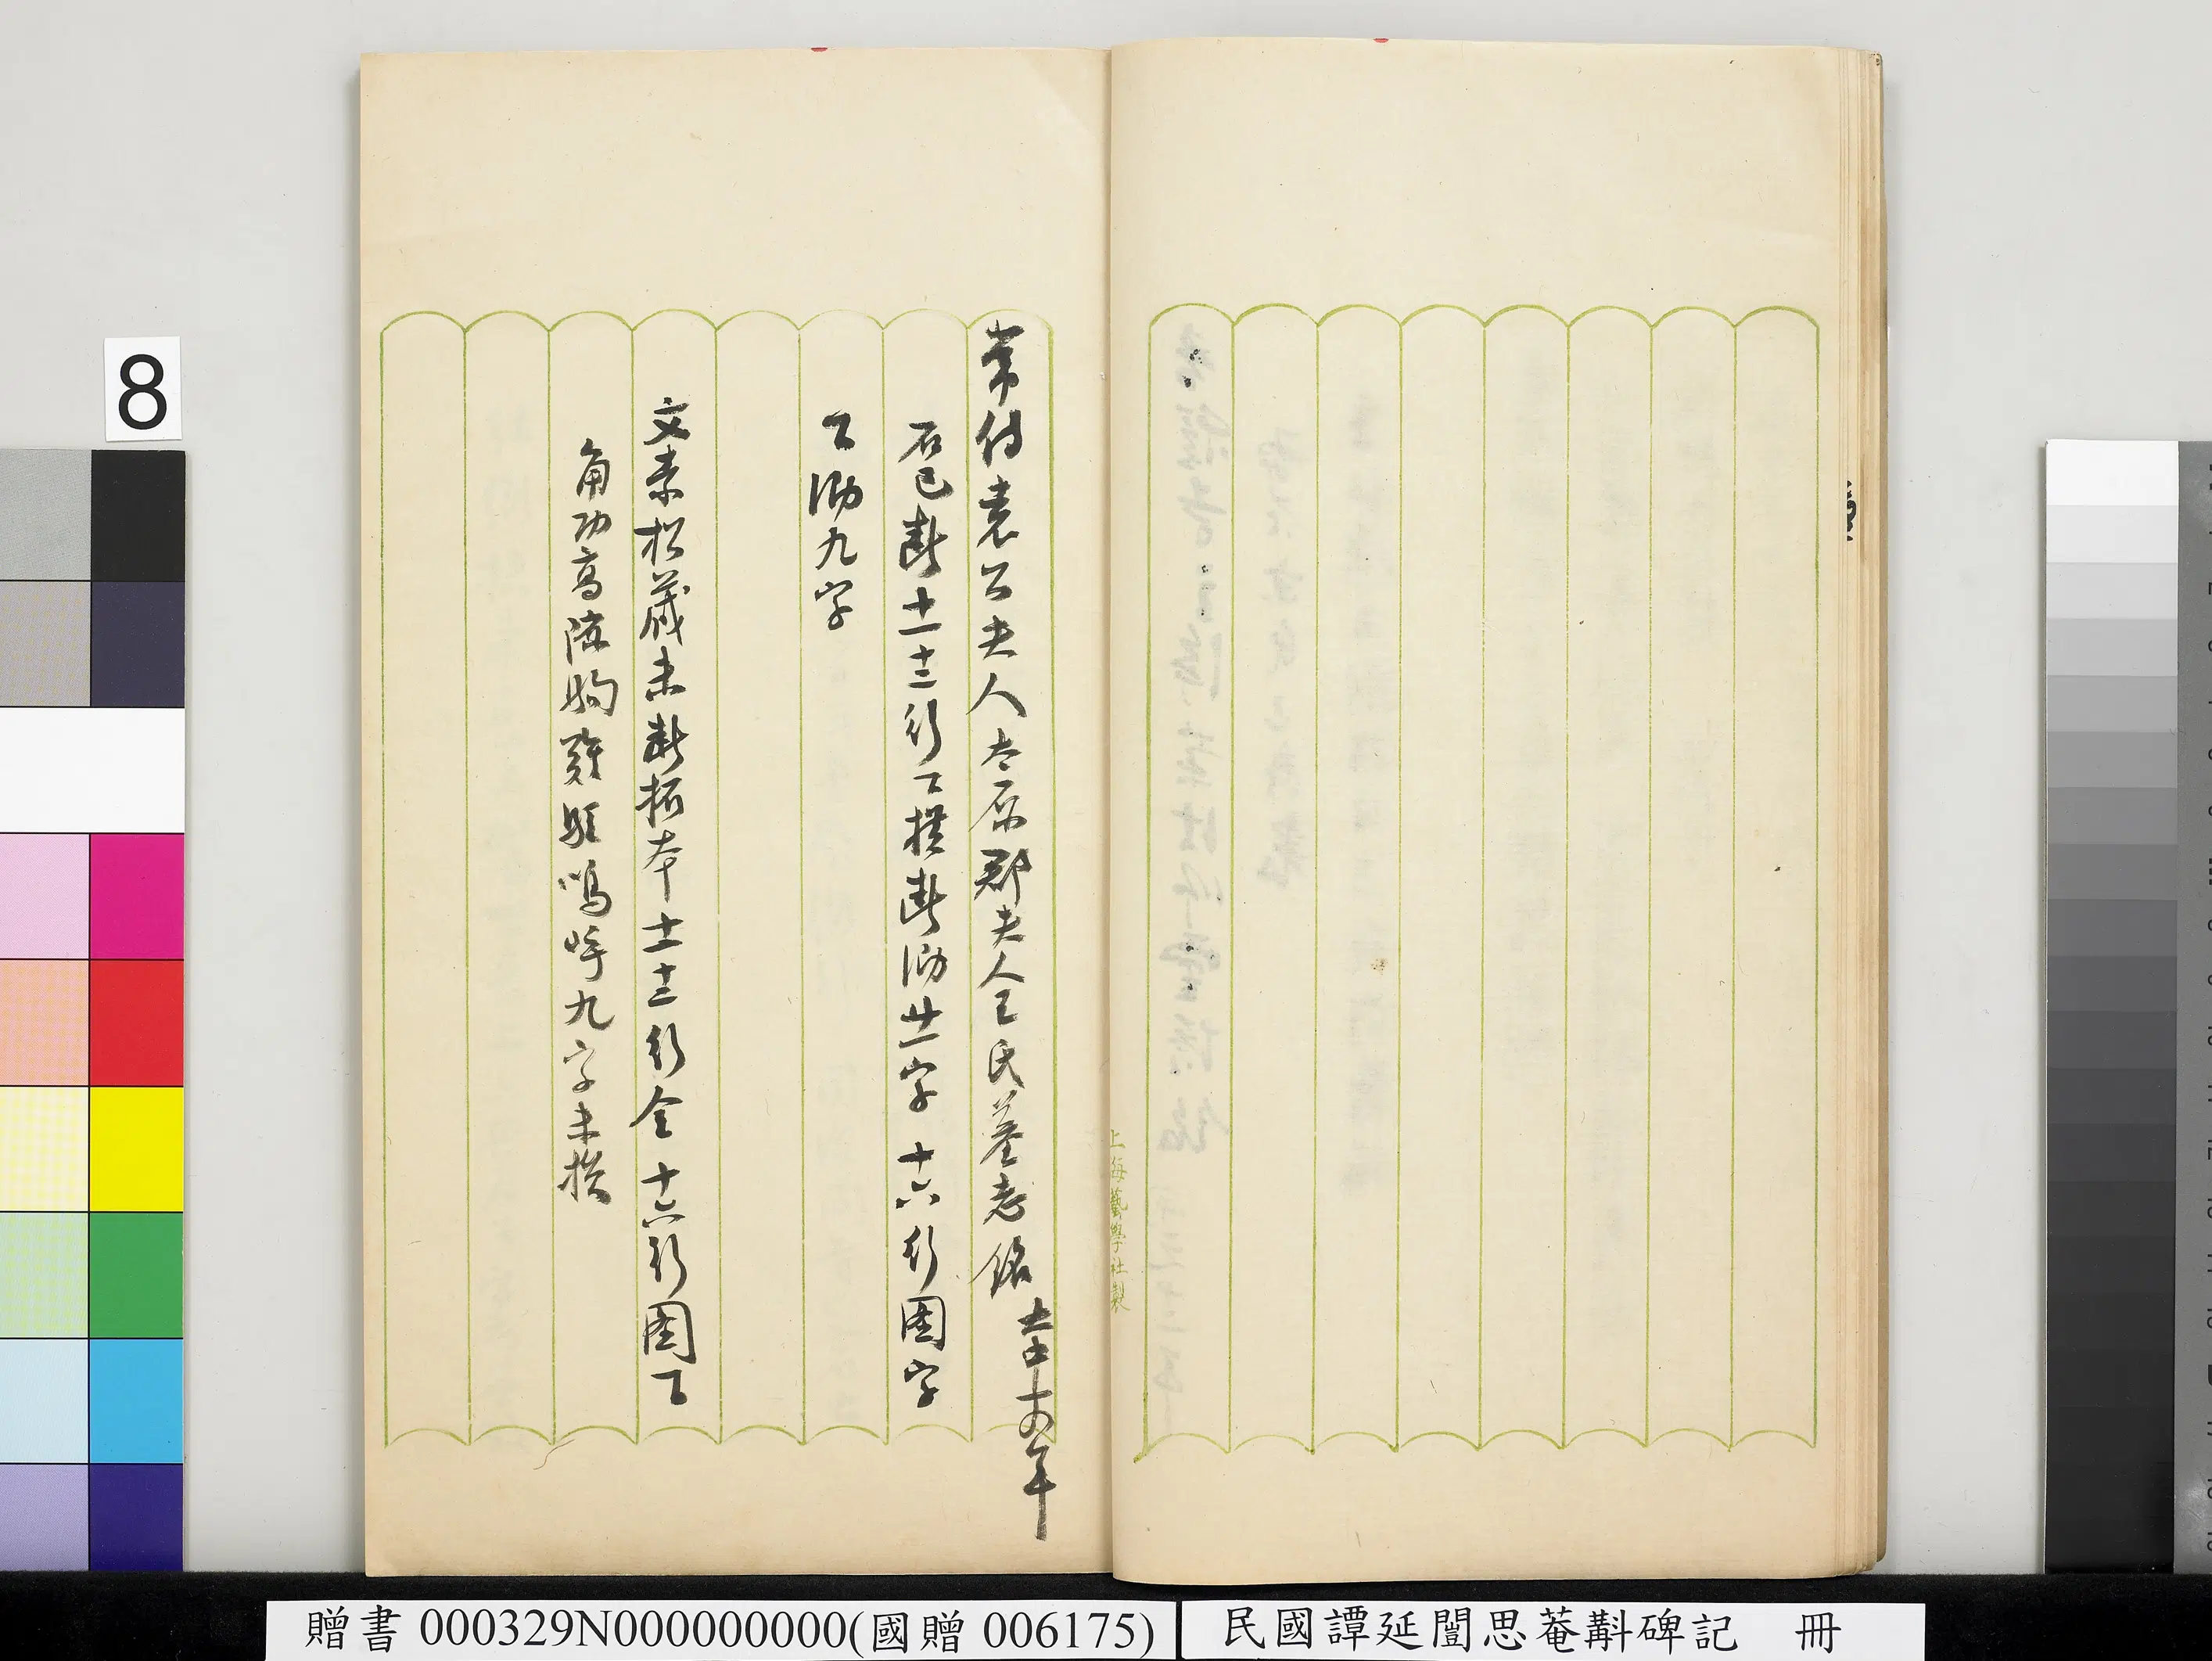 上海藝學社製
常侍袁公夫人太原郡夫人王氏墓志銘 大中十四年
石已斷十一十二行下損斷泐廿一字 十六行園字
下泐九字
文素松藏未斷拓本十一十二行全 十六行園下
角功高隙駒難駐嗚呼九字未損
8
贈書 000329N000000000(國贈 006175)
民國譚延闓思菴斠碑記 冊